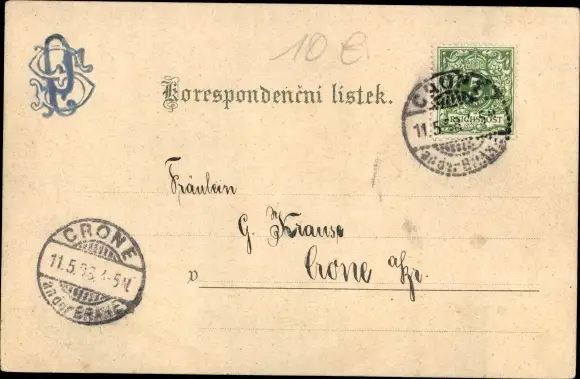 10 €
Korespondenční lístek.
5
REICHSPOST
CRONE
11.5.
an der BRAHE
Fräulein
G. Krause
v Crone a/Br.
CRONE
11.5.98. 4-5N.
an der BRAHE